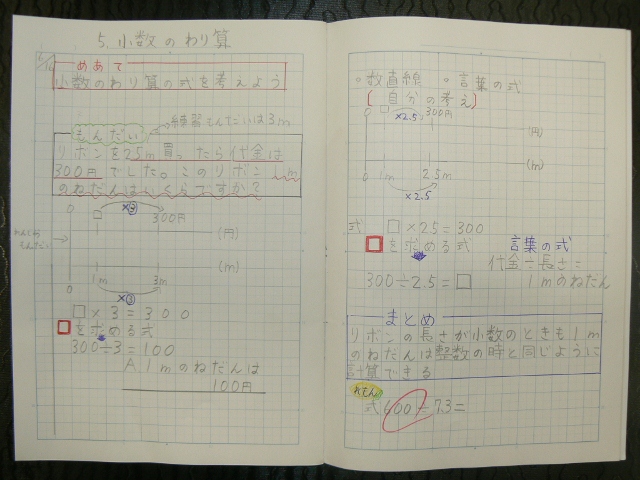 5. 小数のわり算
めあて
小数のわり算の式を考えよう
もんだい
練習もんだいは3m
リボンを2.5m買ったら代金は
300円でした。このリボン1m
のねだんはいくらですか?
×③
0 □ 300円
(円)
(m)
0 1m 3m
×③
□×3=300
□を求める式
300÷3=100
A. 1mのねだんは
100円
。数直線 。言葉の式
(自分の考え)
×2.5
0 □ 300円
(円)
(m)
0 1m 2.5m
×2.5
式 □×2.5=300
□を求める式
言葉の式
代金÷長さ=
1mのねだん
300÷2.5=□
まとめ
リボンの長さが小数のときも1m
のねだんは整数の時と同じように
計算できる
式 600÷7.3=